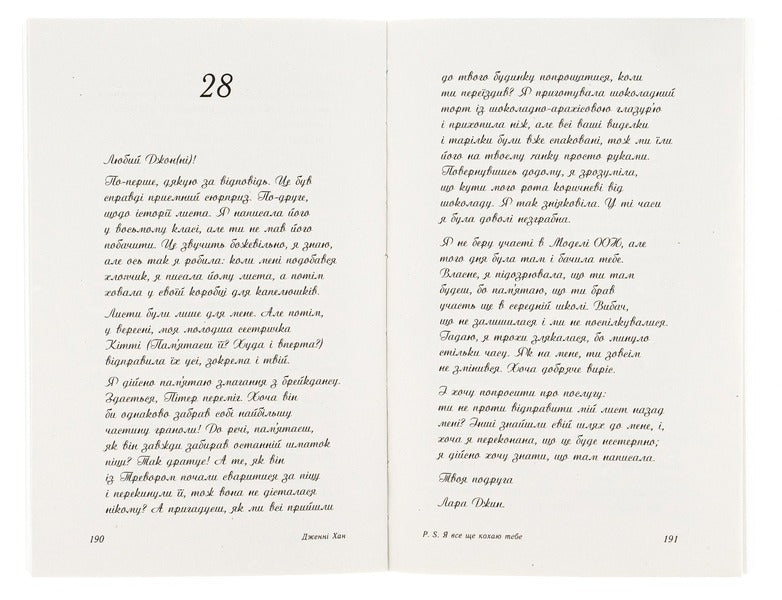 28
Любий Джон(ні)!
По-перше, дякую за відповідь. Це був
справді приємний сюрприз. По-друге,
щодо історії листа. Я написала його
у восьмому класі, але ти не мав його
побачити. Це звучить божевільно, я знаю,
але ось так я робила: коли мені подобався
хлопчик, я писала йому листа, а потім
ховала у своїй коробці для капелюшків.
Листи були лише для мене. Але потім,
у вересні, моя молодша сестричка
Кітті (Пам'ятаєш її? Худа і вперта?)
відправила їх усі, зокрема і твій.
Я дійсно пам'ятаю змагання з брейкдансу.
Здається, Пітер переміг. Хоча він
би однаково забрав собі найбільшу
частину граноли! До речі, пам'ятаєш,
як він завжди забирав останній шматок
піци? Так дратує! А те, як він
із Тревором почали сваритися за піцу
і перекинули її, тож вона не дісталася
нікому? А пригадуєш, як ми всі прийшли
190
Дженні Хан
до твого будинку попрощатися, коли
ти переїздив? Я приготувала шоколадний
торт із шоколадно-арахісовою глазур'ю
і прихопила ніж, але всі ваші виделки
і тарілки були вже спаковані, тож ми їли
його на твоєму ґанку просто руками.
Повернувшись додому, я зрозуміла,
що кути мого рота коричневі від
шоколаду. Я так зніяковіла. У ті часи
я була доволі незграбна.
Я не беру участі в Моделі ООН, але
того дня була там і бачила тебе.
Власне, я підозрювала, що ти там
будеш, бо пам'ятаю, що ти брав
участь ще в середній школі. Вибач,
що не залишилася і ми не поспілкувалися.
Гадаю, я трохи злякалася, бо минуло
стільки часу. Як на мене, ти зовсім
не змінився. Хоча добряче виріс.
І хочу попросити про послугу:
ти не проти відправити мій лист назад
мені? Інші знайшли свій шлях до мене, і,
хоча я переконана, що це буде нестерпно;
я дійсно хочу знати, що там написала.
Твоя подруга
Лара Джин.
P. S. Я все ще кохаю тебе
191